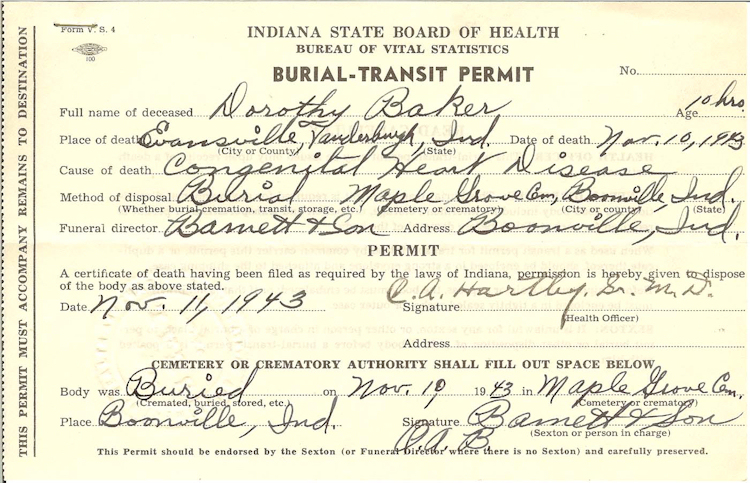 Form V. S. 4
100
INDIANA STATE BOARD OF HEALTH
BUREAU OF VITAL STATISTICS
BURIAL-TRANSIT PERMIT
No.
Full name of deceased Dorothy Baker Age 10 hrs.
Place of death Evansville, Vanderburgh, Ind. Date of death Nov. 10, 1943
(City or County) (State)
Cause of death Congenital Heart Disease
Method of disposal Burial Maple Grove Cem, Boonville, Ind.
(Whether burial, cremation, transit, storage, etc.) (Cemetery or crematory) (City or county) (State)
Funeral director Barnett & Son Address Boonville, Ind.
PERMIT
A certificate of death having been filed as required by the laws of Indiana, permission is hereby given to dispose
of the body as above stated.
Date Nov. 11, 1943 Signature C. A. Hartley, Sr. M.D.
(Health Officer)
Address
CEMETERY OR CREMATORY AUTHORITY SHALL FILL OUT SPACE BELOW
Body was Buried on Nov. 1943 in Maple Grove Cem,
(Cremated, buried, stored, etc.) (Cemetery or crematory)
Place Boonville, Ind. Signature Barnett & Son
(Sexton or person in charge)
C.A.B
This Permit should be endorsed by the Sexton (or Funeral Director where there is no Sexton) and carefully preserved.
THIS PERMIT MUST ACCOMPANY REMAINS TO DESTINATION